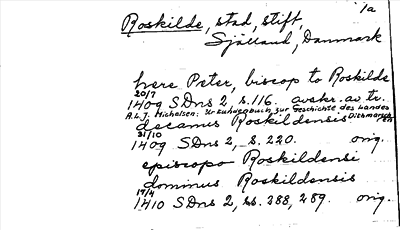 1a
Roskilde, stad, stift,
Sjælland, Danmark
here Peter, biscop to Roskilde
20/7
1409 SDns 2, s. 116. avskr. av tr.
A.L.J. Michelsen. Urkundenbuch zur Geschichte des Landes
decanus Roskildensis Dithmarschen
31/10
1409 SDns 2, s. 220. orig.
episcopo Roskildensi
dominus Roskildensis
19/4
1410 SDns 2, ss. 288, 289. orig.